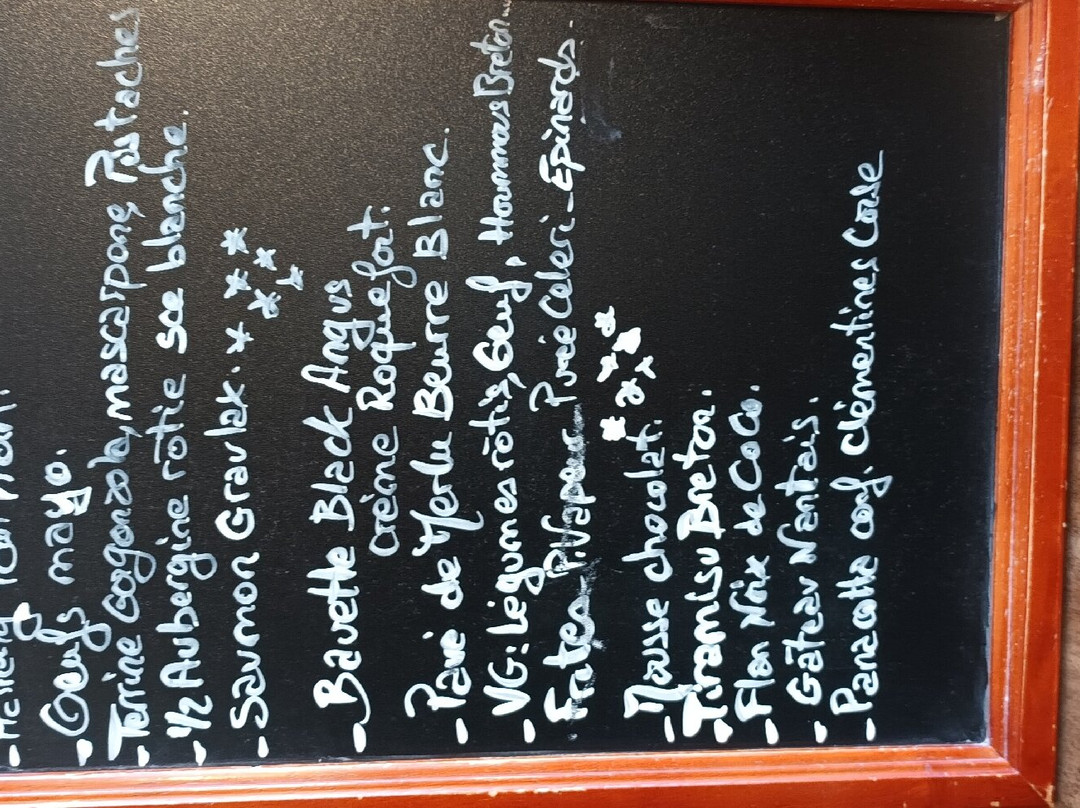 - Oeufs mayo.
- Terrine Gogonzola, mascarpone, Pistaches
- 1/2 Aubergine rôtie sce blanche.
- Saumon Gravlax.
- Bavette Black Angus
crème Roquefort.
- Pavé de Merlu Beurre Blanc.
- VG: Légumes rôtis, Oeuf, Houmous Breton...
Frites P.Vapeur Purée Céleri - Epinards.
- Mousse chocolat.
- Tiramisu Breton.
- Flan Noix de CoCo.
- Gâteau Nantais.
- Panacotta conf. clémentines Corse